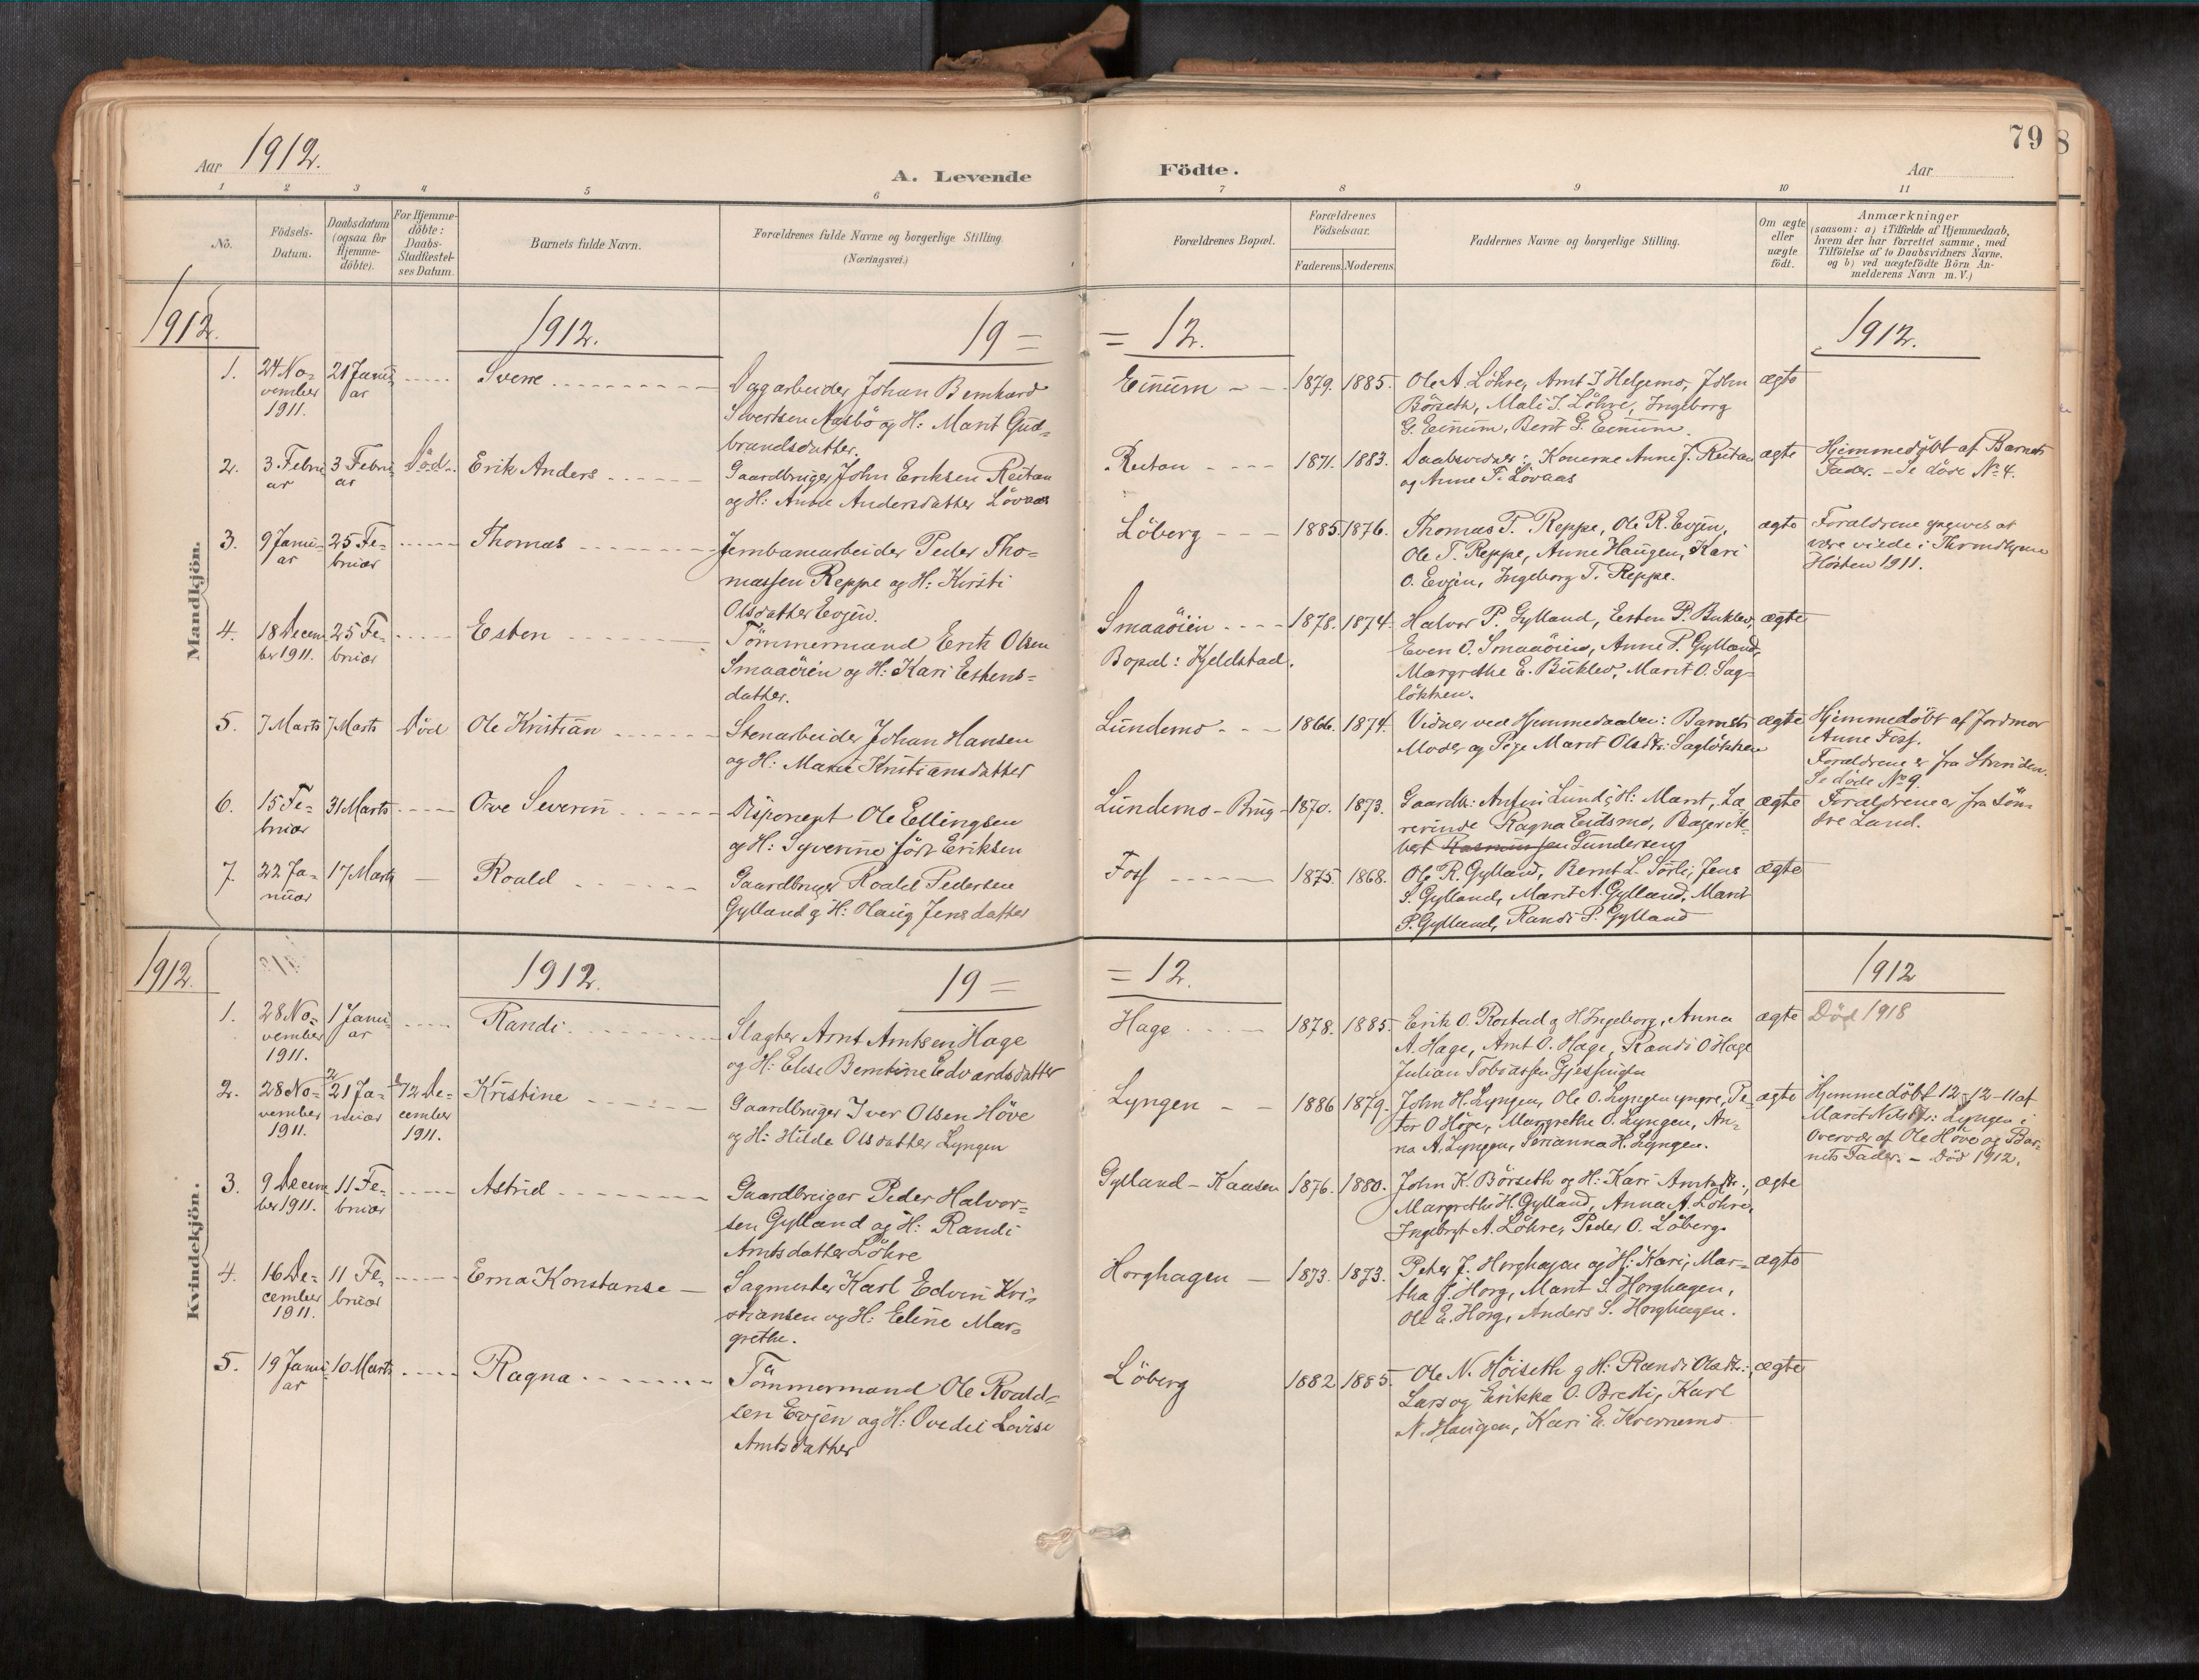 79
8
Aar 1912.
A. Levende
Födte.
Aar
1 2 3 4 5 6 7 8 9 10 11
No.
Födsels-
Datum.
Daabsdatum
(ogsaa for
Hjemme-
döbte).
For Hjemme-
döbte:
Daabs-
Stadfæstel-
ses Datum.
Barnets fulde Navn.
Forældrenes fulde Navne og borgerlige Stilling.
(Næringsvei.)
Forældrenes Bopæl.
Forældrenes
Födselsaar.
Faderens. Moderens.
Faddernes Navne og borgerlige Stilling.
Om ægte
eller
uægte
født.
Anmærkninger
(saasom: a) i Tilfælde af Hjemmedaab,
hvem der har forrettet samme, med
Tilföielse af to Daabsvidners Navne.
og b) ved uægtefödte Börn An-
melderens Navn m. V.)
1912. 1912. 19 = = 12. 1912.
Mandkjön.
1. 24 No-
vember
1911.
21 Janu-
ar
Sverre
Dagarbeider Johan Bernhard
Sivertsen Aasbö og H: Marit Gud-
brandsdatter.
Einum 1879. 1885.
Ole A. Löhre, Arnt J Helgemo, John
Börseth, Mali J. Löhre, Ingeborg
G. Einum, Berit G. Einum
ægte
2. 3 Febru
ar
3 Febru
ar
Död.
Erik Anders
Gaardbruger John Eriksen Reitan
og H: Anne Andersdatter Lövaas
Reitan 1871. 1883.
Daabsvidner: Konerne Anne J. Reitan
og Anne F. Lövaas
ægte
Hjemmedöbt af Barnets
Fader. - Se döde No 4.
3. 9 Janu-
ar
25 Fe-
bruar
Thomas
Jernbanearbeider Peder Tho-
massen Reppe og H: Kirsti
Olsdatter Evjen.
Löberg 1885. 1876.
Thomas P. Reppe, Ole R. Evjen,
Ole T. Reppe, Anne Haugen, Kari
O. Evjen, Ingeborg T. Reppe.
ægte
Forældrene opgives at
være viede i Throndhjem
Hösten 1911.
4. 18 Decem
ber 1911.
25 Fe-
bruar
Esten
Tömmermand Erik Olsen
Smaaöien og H: Kari Estens-
datter.
Smaaöien
Bopæl: Kjeldstad.
1878. 1874.
Halvor P. Gylland, Esten P. Buklev,
Even O. Smaaöien, Anne P. Gylland,
Margrethe E. Buklev, Marit O. Sag-
lökken.
ægte
5. 7 Marts 7 Marts Död
Ole Kristian
Stenarbeider Johan Hansen
og H: Marie Kristiansdatter
Lundemo 1866. 1874.
Vidner ved Hjemmedaaben: Barnets
Moder og Pige Marit Olsdtr: Saglökken
ægte
Hjemmedöbt af Jordmor
Anne Foss.
Forældrene er fra Strinden.
Se döde No 9.
6. 15 Fe-
bruar
31 Marts
Ove Severin
Disponent Ole Ellingsen
og H: Syverine född Eriksen
Lundemo-Brug 1870. 1873.
Gaardbr: Anfin Lund & H: Marit, Læ-
rerinde Ragna Eidsmo, Bager Al-
bert Rasmussen Gundersen
ægte
Forældrene er fra Sön-
dre Land.
7. 22 Ja-
nuar
17 Marts
Roald
Gaardbruger Roald Pedersen
Gylland og H: Olaug Jensdatter
Foss 1875. 1868.
Ole R. Gylland, Bernt L. Sörli, Jens
S. Gylland, Marit A. Gylland, Marit
P. Gylland, Randi P. Gylland
ægte
1912. 1912. 19 = = 12. 1912
Kvindekjön.
1. 28 No-
vember
1911.
1 Janu-
ar
Randi
Slagter Arnt Arntsen Hage
og H: Elise Berntine Edvardsdatter
Hage 1878. 1885.
Erik O. Rostad og H Ingeborg, Anna
A. Hage, Arnt O. Hage, Randi O Hage
Julian Tobiassen Gjessingen
ægte
Död 1918
2. 28 No-
vember
1911.
21 Ja-
nuar
12 De-
cember
1911.
Kristine
Gaardbruger Iver Olsen Höve
og H: Hilda Olsdatter Lyngen
Lyngen 1886 1879.
John H. Lyngen, Ole O. Lyngen yngre, Pe-
ter O Höve, Margrethe O. Lyngen, An-
na A. Lyngen, Serianna H. Lyngen.
ægte
Hjemmedöbt 12-12-11 af
Marit Nilsdtr: Lyngen i
Overvær af Ole Höve og Bar-
nets Fader. - Död 1912.
3. 9 Decem
ber 1911.
11 Fe-
bruar
Astrid
Gaardbruger Peder Halvor-
sen Gylland og H: Randi
Arntsdatter Löhre
Gylland-Kaasen 1876. 1880.
John K. Börseth og H: Kari Arntsdtr:,
Margrethe H. Gylland, Anna A. Löhre,
Ingebrgt A. Löhre, Peder O. Löberg.
ægte
4. 16 De-
cember
1911.
11 Fe-
bruar
Erna Konstanse
Sagmester Karl Edvin Kri-
stiansen og H: Eline Mar-
grethe.
Horghagen 1873. 1873.
Peter J. Horghagen og H: Kari, Mar-
tha J. Horg, Marit S. Horghagen,
Ole E. Horg, Anders S. Horghagen.
ægte
5. 19 Janu
ar
10 Marts
Ragna
Tömmermand Ole Roald-
sen Evjen og H: Ovedie Lovise
Arntsdatter
Löberg 1882 1885.
Ole N. Höiseth og H: Randi Olsdtr:,
Lars og Erikka O. Bredli, Karl
N. Haugen, Kari E. Kvernemo
ægte